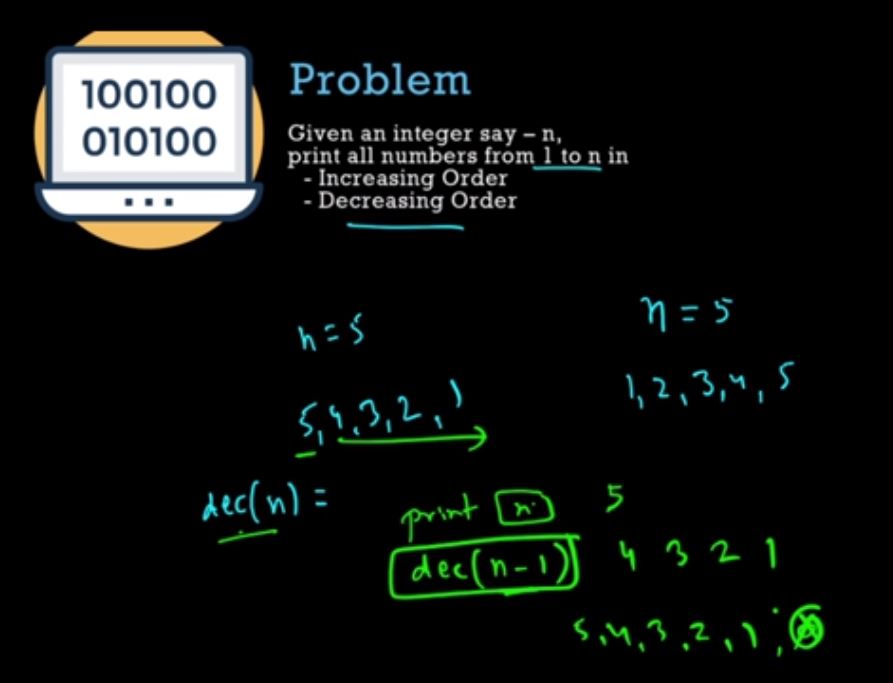 100100
010100
Problem
Given an integer say – n,
print all numbers from 1 to n in
- Increasing Order
- Decreasing Order
n = 5
n = 5
5, 4, 3, 2, 1
1, 2, 3, 4, 5
dec(n) =
print n 5
dec(n-1) 4 3 2 1
5, 4, 3, 2, 1,